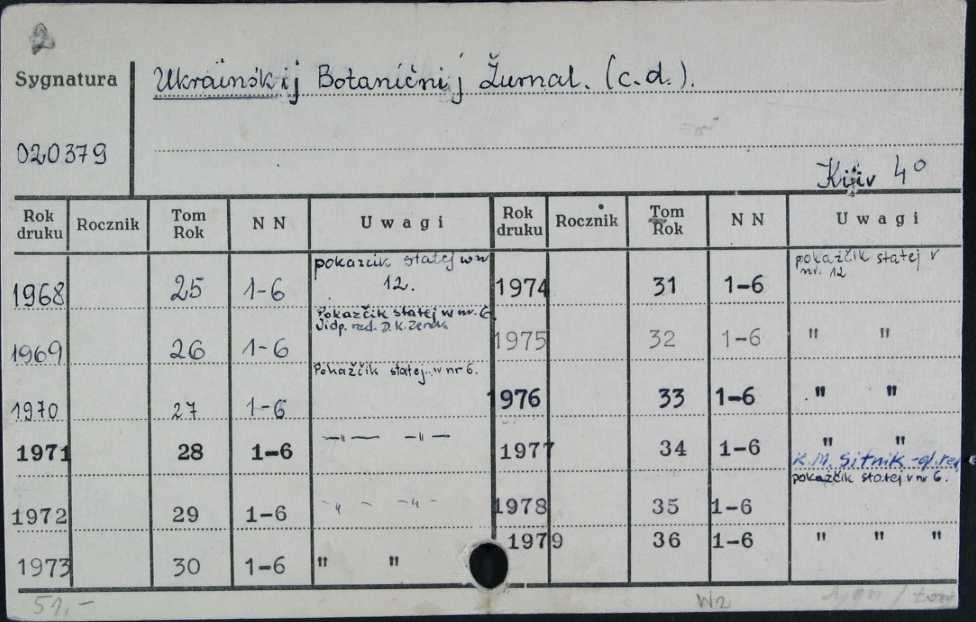 2
Sygnatura
Ukraïnśkij Botaničnij Žurnal. (c.d.).
020379
Kiïv 4°
Rok druku Rocznik Tom Rok NN Uwagi Rok druku Rocznik Tom Rok NN Uwagi
1968 25 1-6 pokazcik statej w nr 12. 1974 31 1-6 pokažčik statej v nr. 12
1969 26 1-6 Pokažčik statej w nr. 6. Vidp. red. D.K. Zerov 1975 32 1-6 " "
1970 27 1-6 Pokažčik statej w nr 6. 1976 33 1-6 " "
1971 28 1-6 —"— —"— 1977 34 1-6 " " K.M. Sitnik -
1972 29 1-6 -"- -"- 1978 35 1-6 pokažčik statej v nr 6.
1973 30 1-6 " " 1979 36 1-6 " " "
51,-
W2